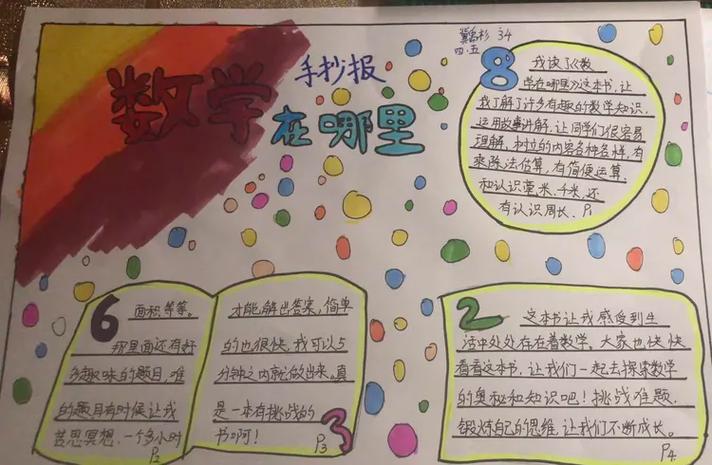 数学
在哪里
手抄报
34
四.五
8
我读了《数
学在哪里》这本书,让
我了解了许多有趣的数学知识,
运用故事讲解,让同学们很容易
理解,树立的内容各种各样,有
乘除法估算,有简便运算,
和认识毫米、千米,还
有认识周长、P1
6
面积等等。
那里面还有好
多趣味的题目,难
的题目有时候让我
苦思冥想,一个多小时
P2
才能解出答案,简单
的也很快,我可以5
分钟之内就做出来。真
是一本有挑战的
书啊!
P3
3
2
这本书让我感受到生
活中处处存在着数学。大家也快快
看看这本书,让我们一起去探索数学
的奥秘和知识吧!挑战难题,
锻炼自己的思维,让我们不断成长。
P4